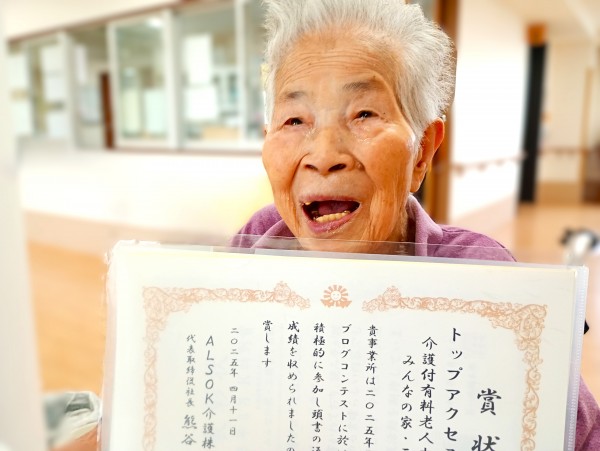 賞状
トップアクセス
介護付有料老人
みんなの家・
貴事業所は二〇二五年
ブログコンテストに於
積極的に参加し頭書の
成績を収められましたの
賞します
二〇二五年 四月十一日
ALSOK介護株
代表取締役社長 熊谷